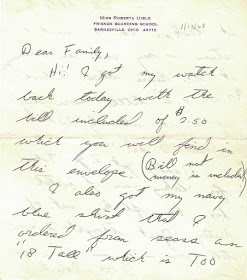 MISS ROBERTA UIBLE
FRIENDS BOARDING SCHOOL
BARNESVILLE, OHIO 43713
Dear Family,
Hi! I got my watch
back today with the
bill included of $7.50
which you will find in
this envelope. (Bill not
money is included)
I also got my navy
blue skirt that I
ordered from sears an
"18 Tall" which is TOO